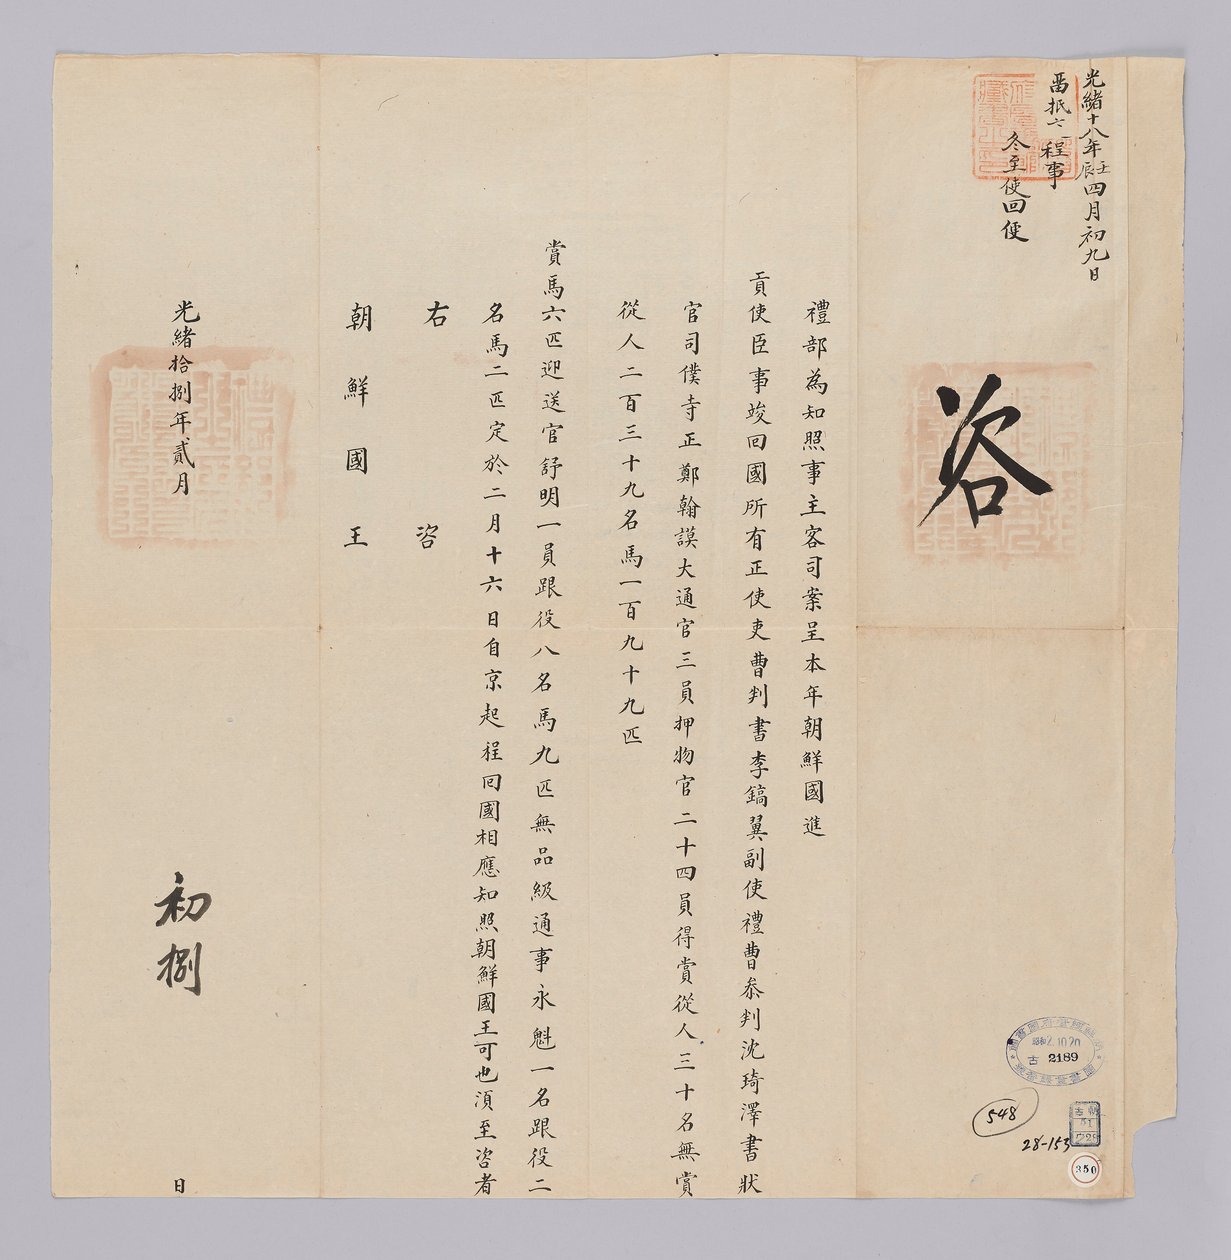 光緒十八年壬辰四月初九日
冬至使回便
咨
禮部為知照事主客司案呈本年朝鮮國進
貢使臣事竣回國所有正使吏曹判書李鎬翼副使禮曹叅判沈琦澤書狀
官司僕寺正鄭翰謨大通官三員押物官二十四員得賞從人三十名無賞
從人二百三十九名馬一百九十九匹
賞馬六匹迎送官舒明一員跟役八名馬九匹無品級通事永魁一名跟役二
名馬二匹定於二月十六日自京起程回國相應知照朝鮮國王可也須至咨者
右咨
朝鮮國王
光緒拾捌年貳月初捌日
昭和2.10.20
古 2189
548
朝古
51
28-153
350